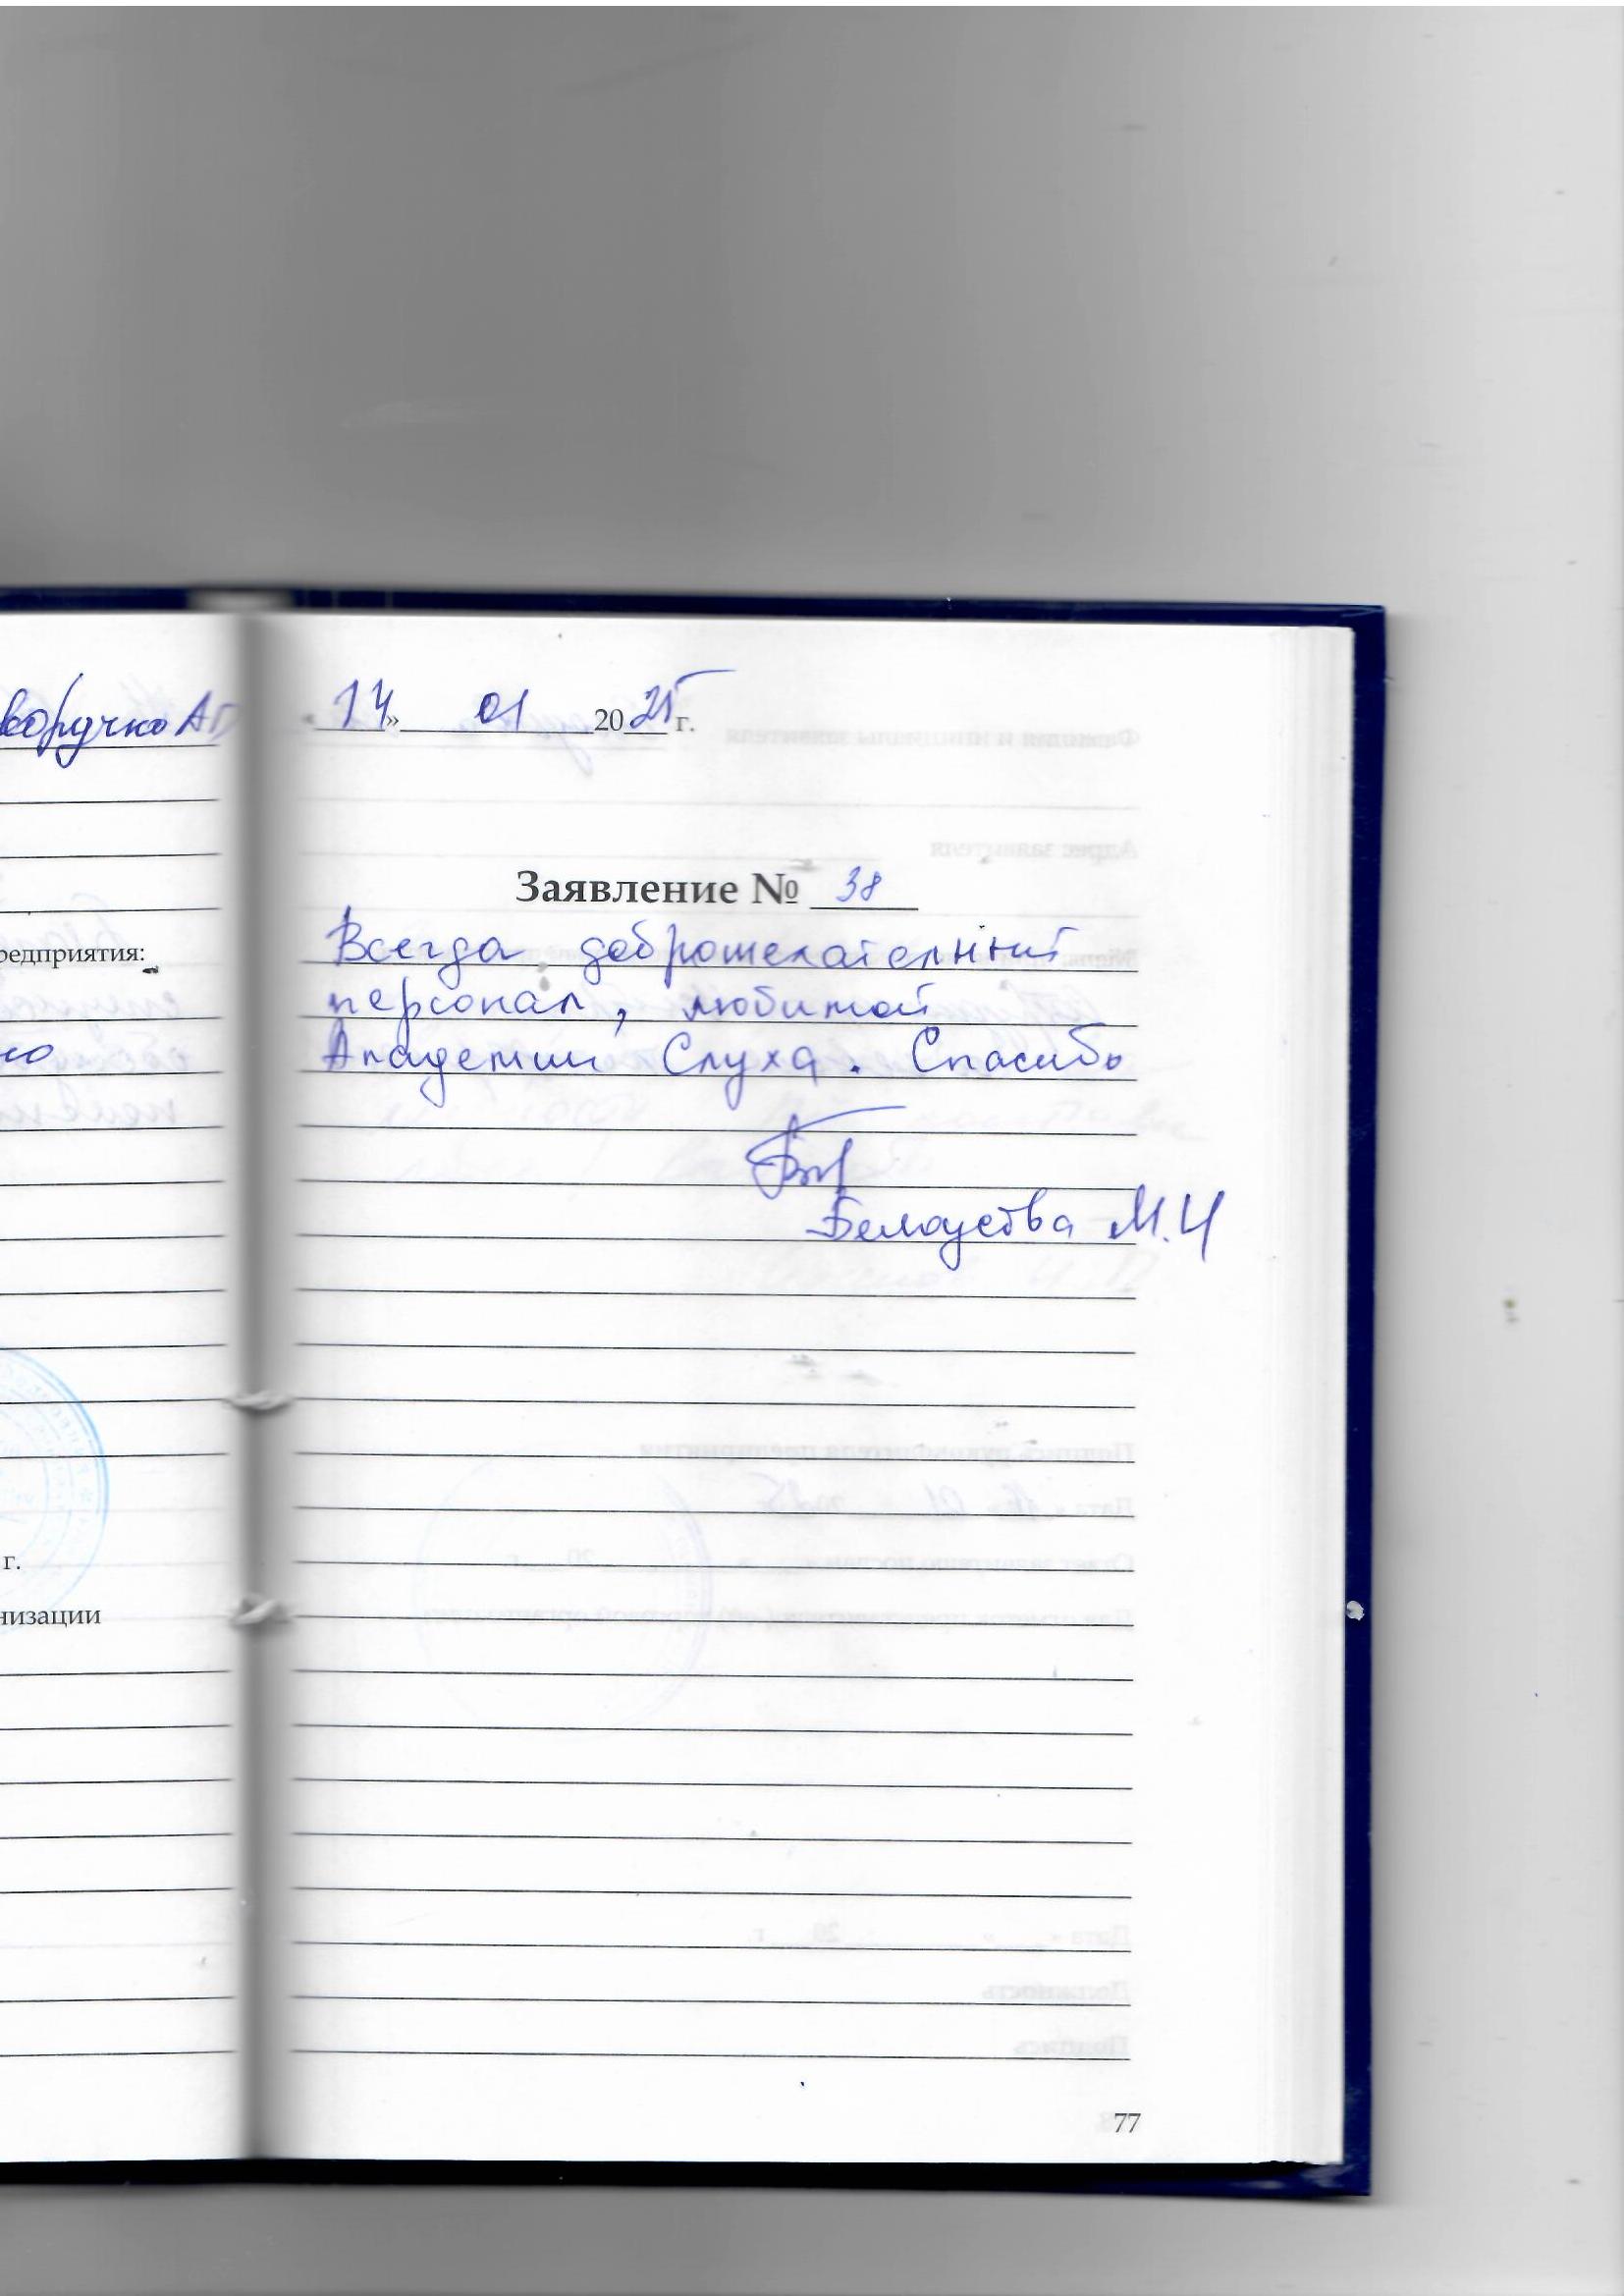 воручко А
редприятия:
но
г.
низации
14» 01 2025 г.
Заявление № 38
Всегда доброжелательный
персонал, любимой
Академии Слуха. Спасибо
Белоусова М.И
77